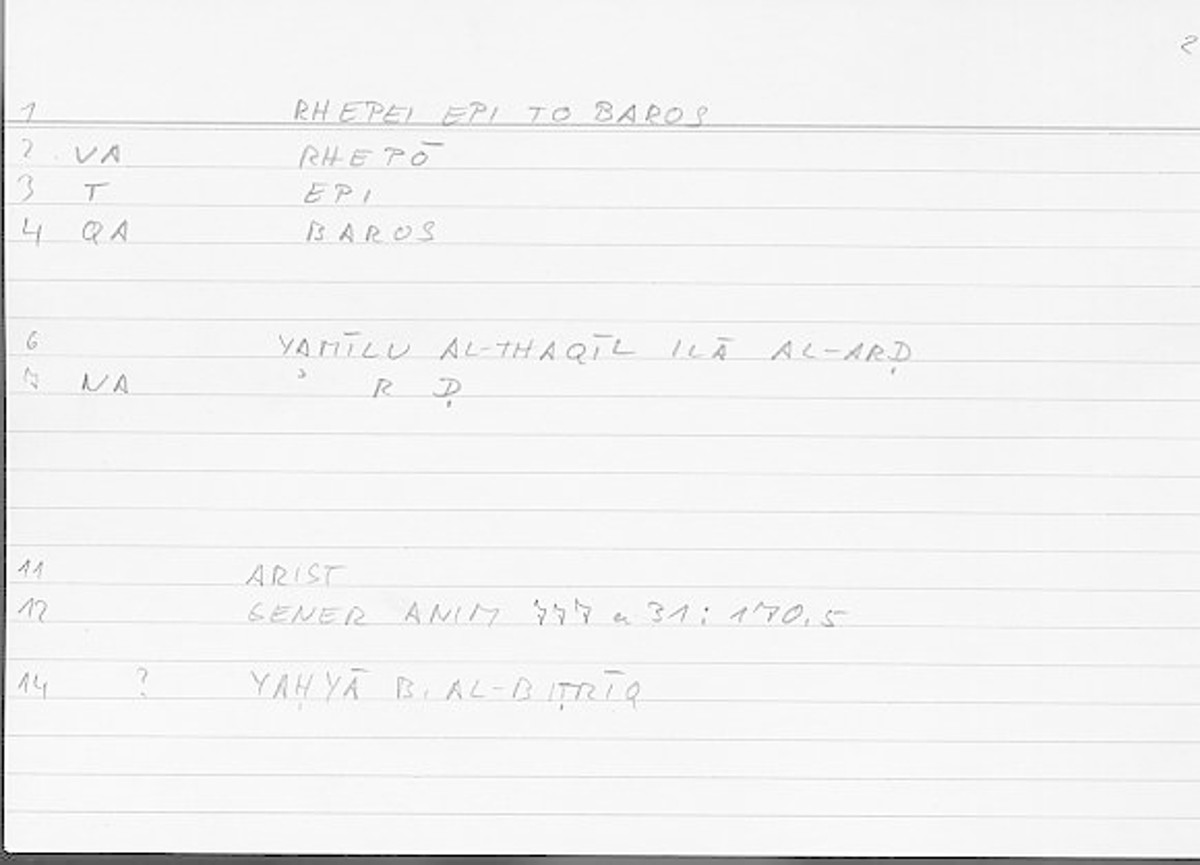 2
1 RHEPEI EPI TO BAROS
2 VA RHEPŌ
3 T EPI
4 QA BAROS
6 YAMĪLU AL-THAQĪL ILĀ AL-ARḌ
7 NA ʾ R Ḍ
11 ARIST
12 GENER ANIM 777 a 31: 170.5
14 ? YAḤYĀ B. AL-BIṬRĪQ